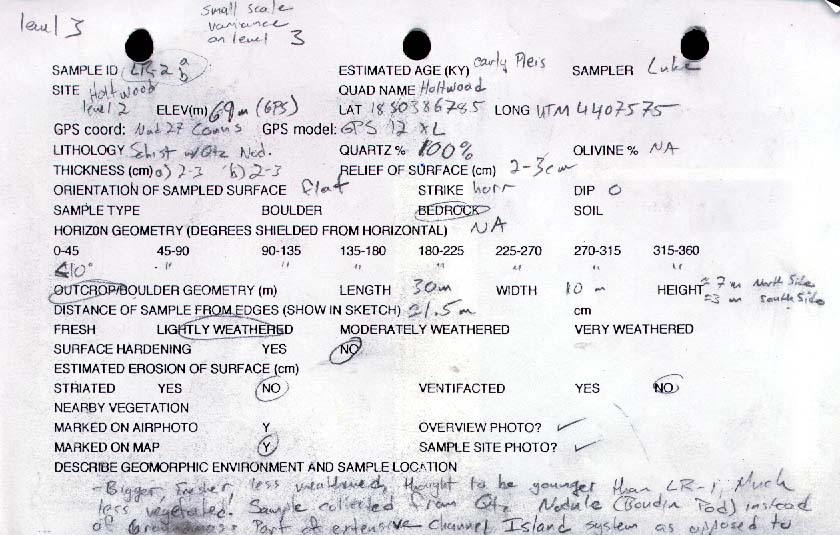 level 3
small scale
variance
on level 3
SAMPLE ID LR-2 a b ESTIMATED AGE (KY) early Pleis SAMPLER Luke
SITE Holtwood QUAD NAME Holtwood
level 2 ELEV(m) 69m (GPS) LAT 18S0386785 LONG UTM 4407575
GPS coord: Nad 27 Conus GPS model: GPS 12 XL
LITHOLOGY Schist w/Qtz Nod. QUARTZ % 100% OLIVINE % NA
THICKNESS (cm) a) 2-3 b) 2-3 RELIEF OF SURFACE (cm) 2-3cm
ORIENTATION OF SAMPLED SURFACE flat STRIKE horr DIP 0
SAMPLE TYPE BOULDER BEDROCK SOIL
HORIZON GEOMETRY (DEGREES SHIELDED FROM HORIZONTAL) NA
0-45 45-90 90-135 135-180 180-225 225-270 270-315 315-360
<10° " " " " " " "
OUTCROP/BOULDER GEOMETRY (m) LENGTH 30m WIDTH 10 m HEIGHT ≈7m North Side
≈3 m South Side
DISTANCE OF SAMPLE FROM EDGES (SHOW IN SKETCH) ≈1.5m cm
FRESH LIGHTLY WEATHERED MODERATELY WEATHERED VERY WEATHERED
SURFACE HARDENING YES NO
ESTIMATED EROSION OF SURFACE (cm)
STRIATED YES NO VENTIFACTED YES NO
NEARBY VEGETATION
MARKED ON AIRPHOTO Y OVERVIEW PHOTO? ✓
MARKED ON MAP Y SAMPLE SITE PHOTO? ✓
DESCRIBE GEOMORPHIC ENVIRONMENT AND SAMPLE LOCATION
- Bigger, fresher, less weathered, thought to be younger than LR-1, Much
less vegetated. Sample collected from Qtz Nodule (Boudin Pod) instead
of Part of extensive Channel Island system as opposed to